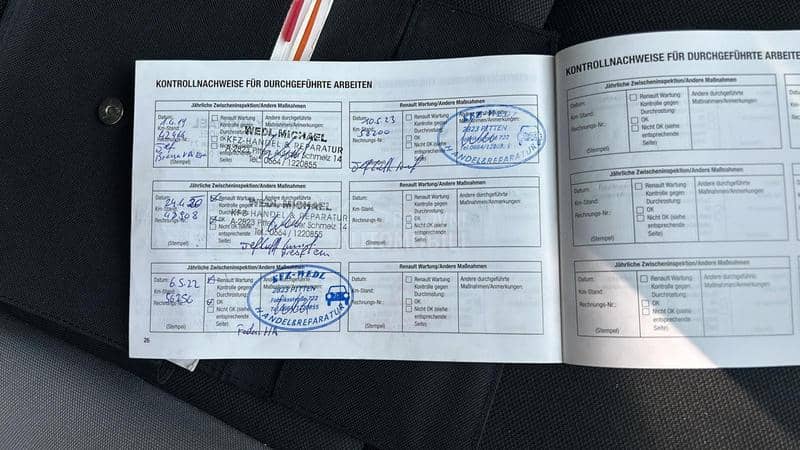 KONTROLLNACHWEISE FÜR DURCHGEFÜHRTE ARBEITEN
Jährliche Zwischeninspektion/Andere Maßnahmen
Datum:
1.4.19
Km-Stand:
Rechnungs-Nr.:
Renault Wartung
Kontrolle gegen
Andere durchgeführte
Maßnahmen/Anmerkungen:
WEDL MICHAEL
KFZ-HANDEL & REPARATUR
Schmelz 14
Tel. 0664/1220855
Renault Wartung/Andere Maßnahmen
Datum:
10.5.23
Km-Stand:
58200
Rechnungs-Nr.:
(Stempel)
Renault Wartung
Kontrolle gegen
Durchrostung:
OK
Nicht OK (siehe
entsprechende
Seite)
2823 PITTEN
HANDEL&REPARATUR
Jährliche Zwischeninspektion/Andere Maßnahmen
Datum:
24.4.20
Km-Stand:
47508
Rechnungs-Nr.:
(Stempel)
WEDL MICHAEL
KFZ-HANDEL & REPARATUR
Schmelz 14
Tel. 0664/1220855
Renault Wartung/Andere Maßnahmen
Datum:
Km-Stand:
Rechnungs-Nr.:
(Stempel)
Renault Wartung
Kontrolle gegen
Durchrostung:
OK
Nicht OK (siehe
entsprechende
Seite)
Andere durchgeführte
Maßnahmen/Anmerkungen:
Jährliche Zwischeninspektion/Andere Maßnahmen
Datum:
6.5.22
Km-Stand:
56256
Rechnungs-Nr.:
(Stempel)
Renault Wartung
Kontrolle gegen
Durchrostung:
OK
Nicht OK (siehe
entsprechende
Seite)
KFZ-WEDL
2823 PITTEN
HANDEL&REPARATUR
Renault Wartung/Andere Maßnahmen
Datum:
Km-Stand:
Rechnungs-Nr.:
(Stempel)
Renault Wartung
Kontrolle gegen
Durchrostung:
OK
Nicht OK (siehe
entsprechende
Seite)
Andere durchgeführte
Maßnahmen/Anmerkungen:
26
KONTROLLNACHWEISE FÜR DURCHGEFÜHRTE ARBEITEN
Jährliche Zwischeninspektion/Andere Maßnahmen
Datum:
Km-Stand:
Rechnungs-Nr.:
(Stempel)
Renault Wartung
Kontrolle gegen
Durchrostung:
OK
Nicht OK (siehe
entsprechende
Seite)
Andere durchgeführte
Maßnahmen/Anmerkungen:
Jährliche Zwischeninspektion/Andere Maßnahmen
Datum:
Km-Stand:
Rechnungs-Nr.:
(Stempel)
Renault Wartung
Kontrolle gegen
Durchrostung:
OK
Nicht OK (siehe
entsprechende
Seite)
Andere durchgeführte
Maßnahmen/Anmerkungen:
Jährliche Zwischeninspektion/Andere Maßnahmen
Datum:
Km-Stand:
Rechnungs-Nr.:
(Stempel)
Renault Wartung
Kontrolle gegen
Durchrostung:
OK
Nicht OK (siehe
entsprechende
Seite)
Andere durchgeführte
Maßnahmen/Anmerkungen: